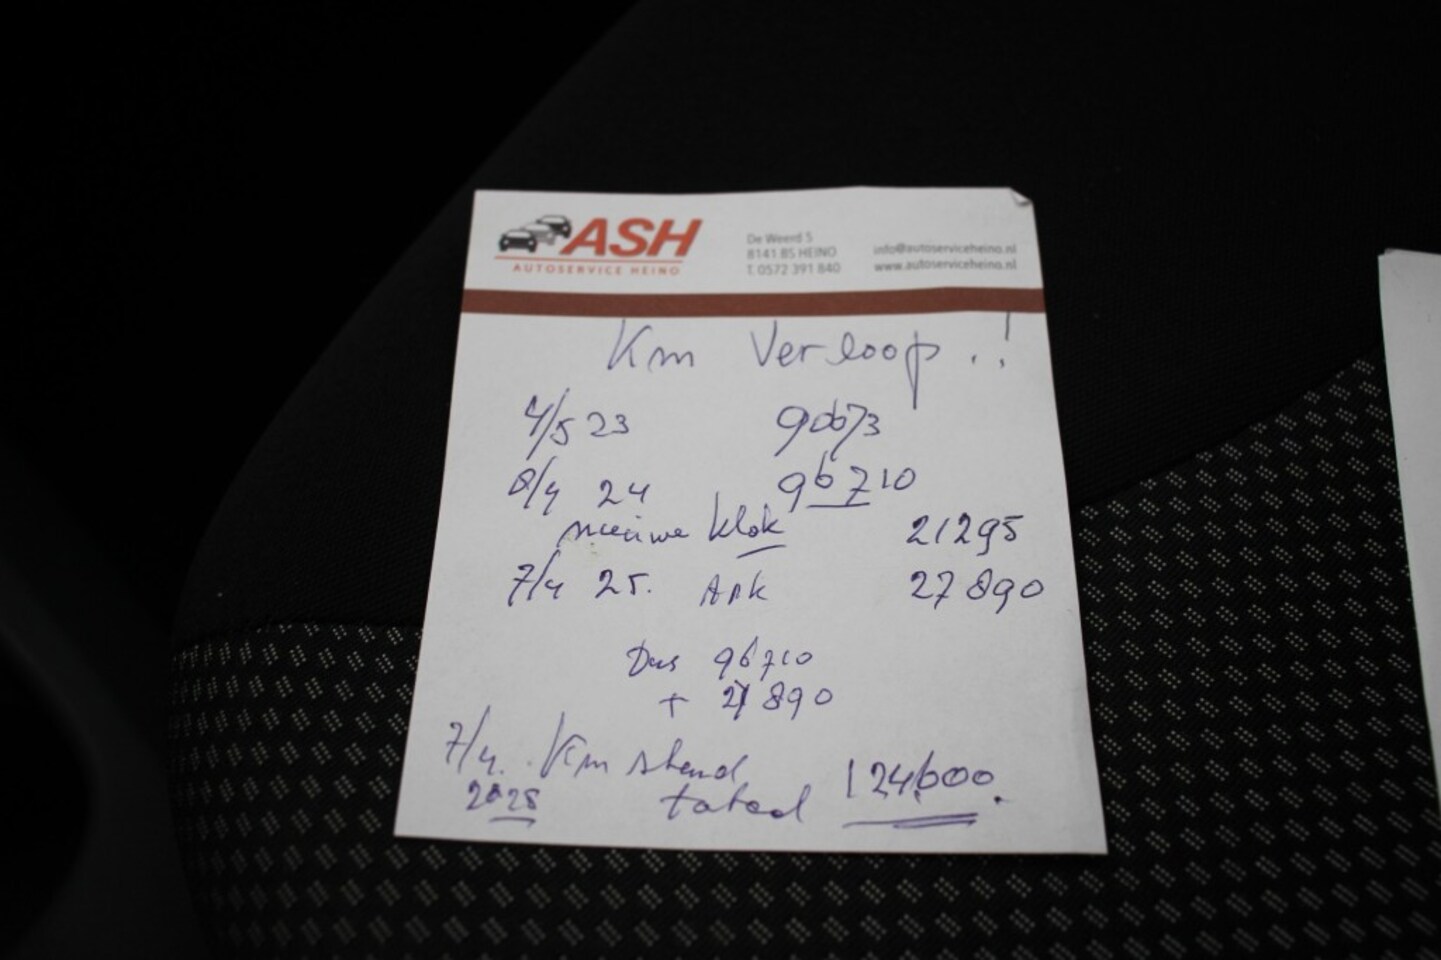 ASH
AUTOSERVICE HEINO
De Weerd 5
8141 BS HEINO
T. 0572 391 840
info@autoserviceheino.nl
www.autoserviceheino.nl
Km Verloop..!
4/5 23 90673
8/4 24 96710
nieuwe klok 21295
7/4 25. APK 27890
Dus 96710
+ 27890
7/4. Km stand
2025 totaal 124600.